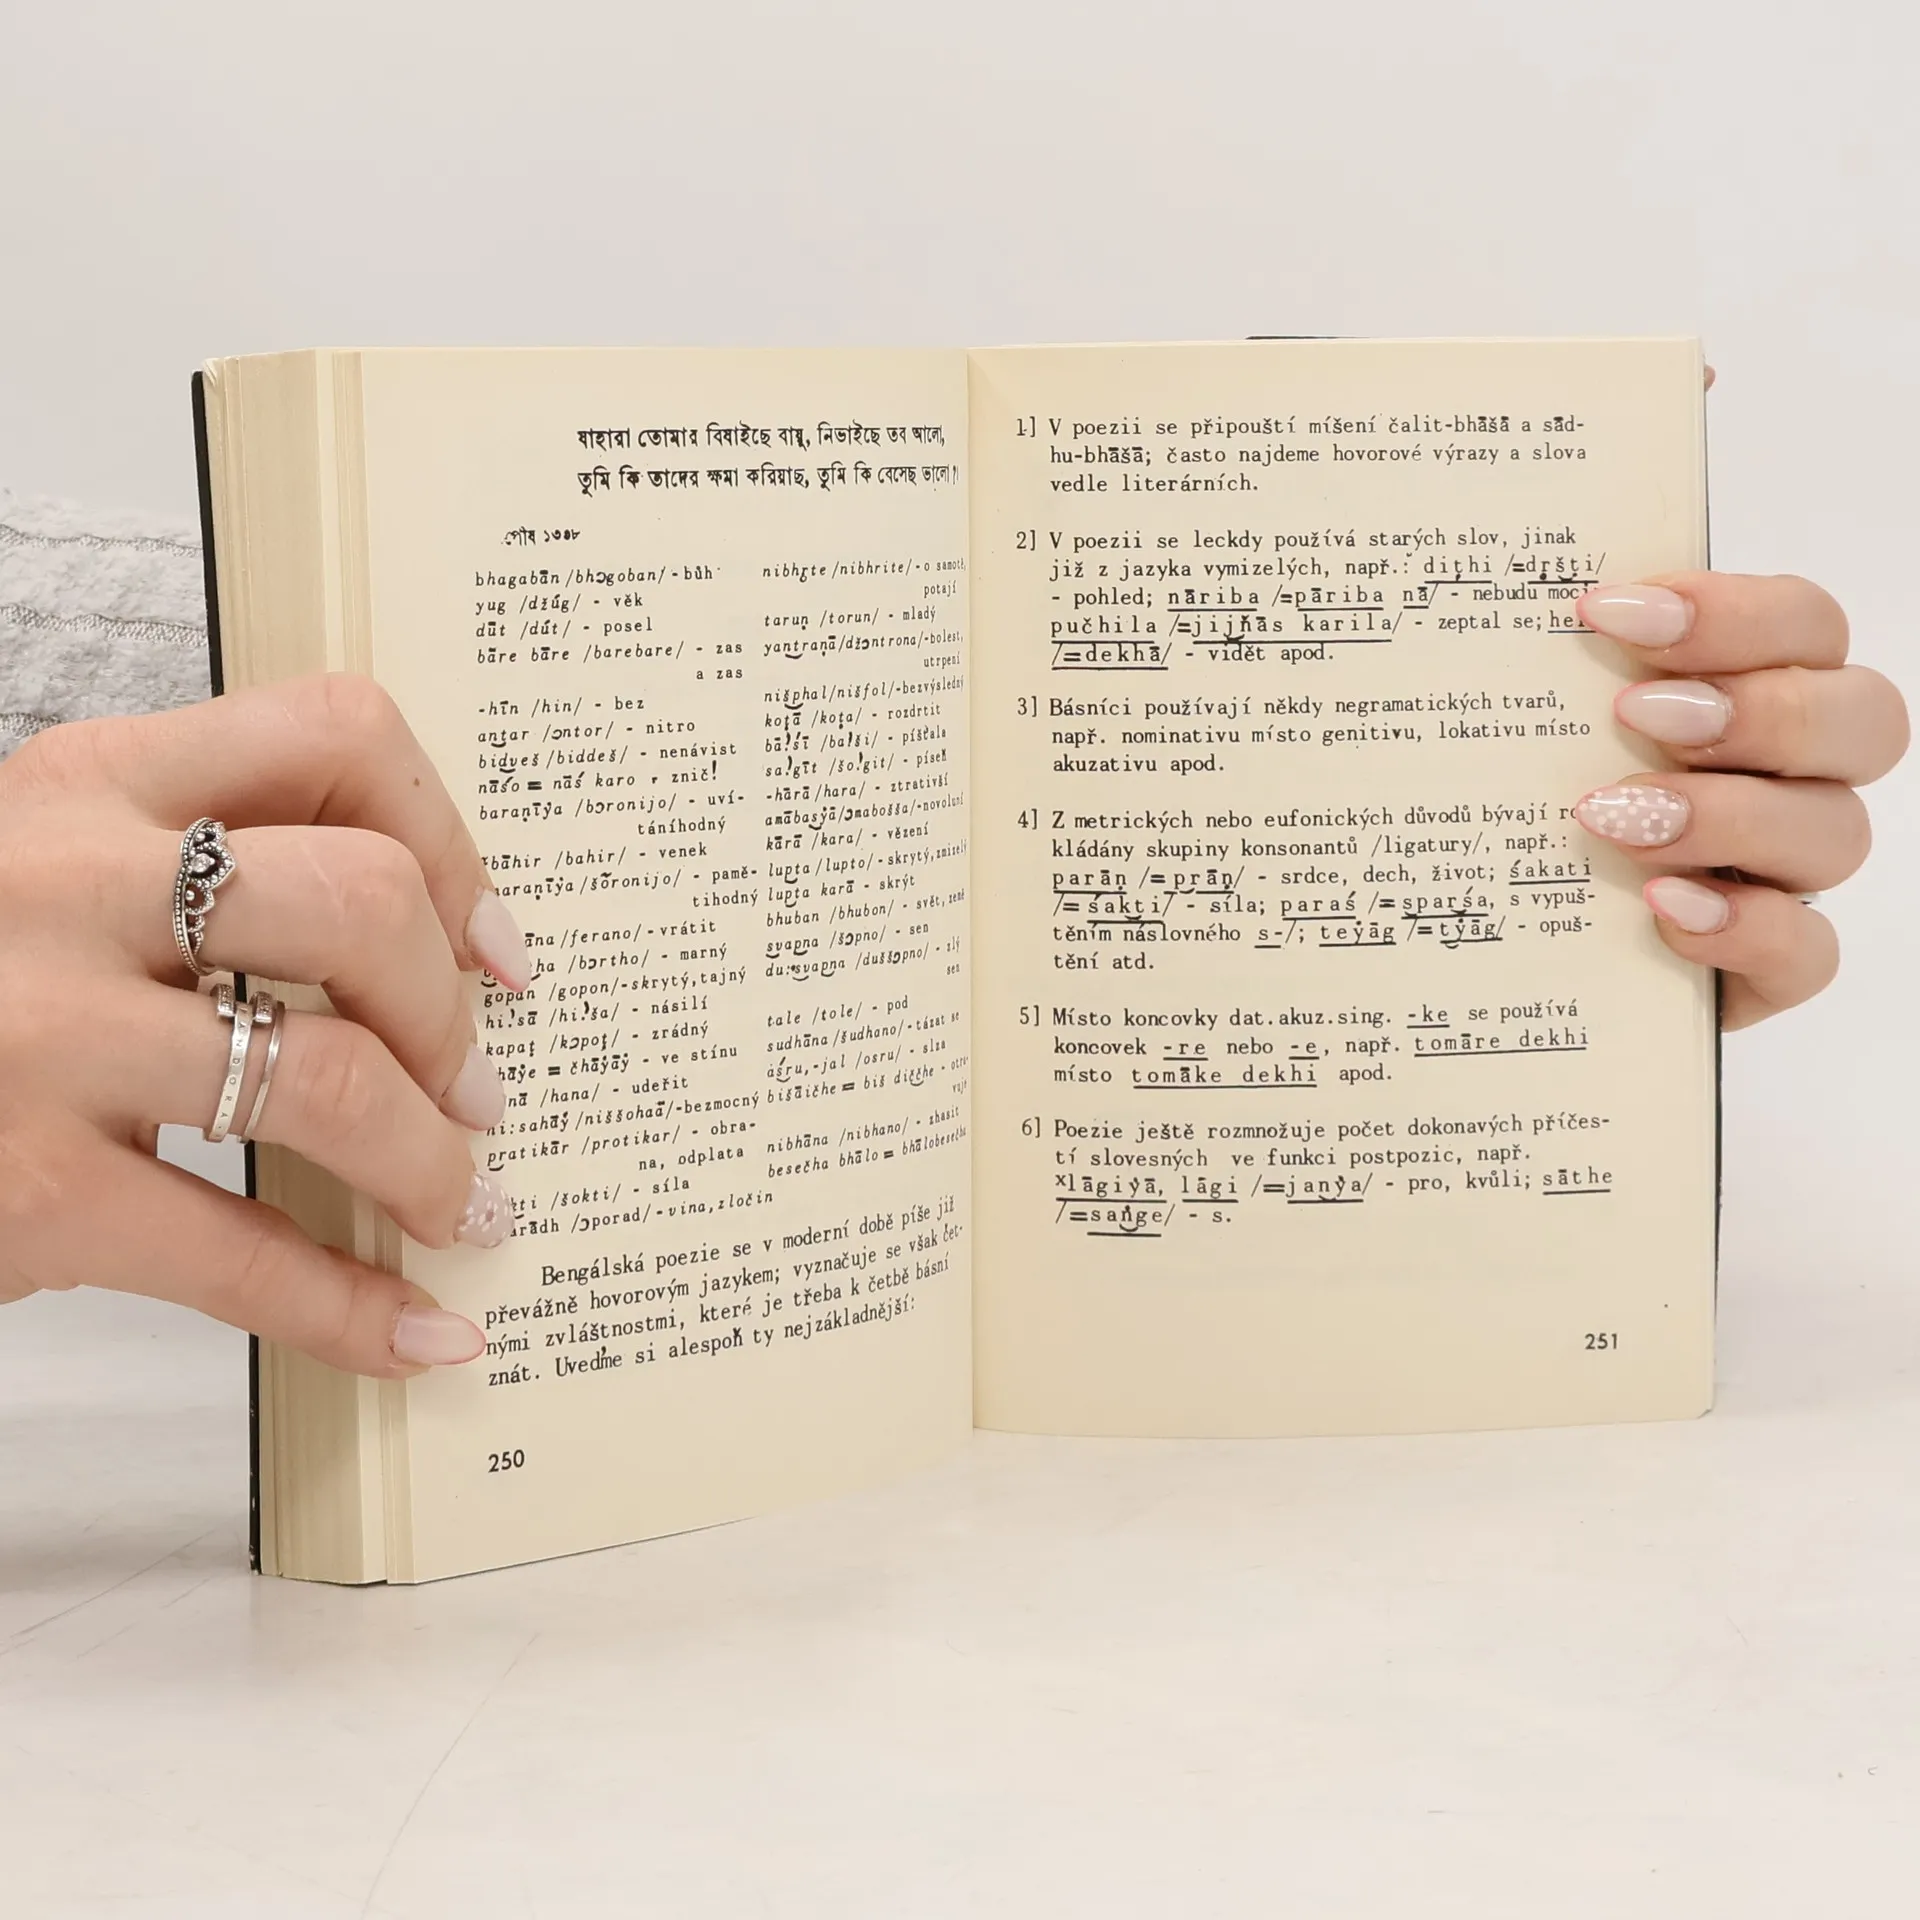 যাহারা তোমার বিষাইছে বায়ু, নিভাইছে তব আলো,
তুমি কি তাদের ক্ষমা করিয়াছ, তুমি কি বেসেছ ভালো?
পৌষ ১৩৩৮
bhagabān /bhɔgoban/ - bůh
yug /džúg/ - věk
dūt /dút/ - posel
bāre bāre /barebare/ - zas
a zas
-hīn /hin/ - bez
antar /ɔntor/ - nitro
bidveš /biddeš/ - nenávist
nāśo = nāś karo - znič!
baraṇīẏa /bɔronijo/ - uví-
táníhodný
bāhir /bahir/ - venek
/šɔ̃ronijo/ - pamě-
tihodný
/ferano/ - vrátit
/bɔrtho/ - marný
gopan /gopon/ - skrytý, tajný
hi.!sā /hi.!ša/ - násilí
kapaṭ /kɔpoṭ/ - zrádný
= čhāẏāẏ - ve stínu
/hana/ - udeřit
/niššohaă/ - bezmocný
pratikār /protikar/ - obra-
na, odplata
/šokti/ - síla
/ɔporad/ - vina, zločin
nibhṛte /nibhrite/ - o samotě,
potají
taruṇ /torun/ - mladý
yantraṇā /džɔntrona/ - bolest,
utrpení
nišphal /nišfol/ - bezvýsledný
koṭā /koṭa/ - rozdrtit
bā.!śī /ba.!ši/ - píšťala
sa.!gīt /šo.!git/ - píseň
-hārā /hara/ - ztrativší
amābasẏā /ɔmabošša/ - novoluní
kārā /kara/ - vězení
lupta /lupto/ - skrytý, zmizelý
lupta karā - skrýt
bhuban /bhubon/ - svět, země
svapna /šɔpno/ - sen
du:svapna /duššɔpno/ - zlý
sen
tale /tole/ - pod
sudhāna /šudhano/ - tázat se
aśru,-jal /osru/ - slza
bišāičhe = biš dičče - otra-
vuje
nibhāna /nibhano/ - zhasit
besečha bhālo = bhālobesečha
Bengálská poezie se v moderní době píše již
převážně hovorovým jazykem; vyznačuje se však čet-
nými zvláštnostmi, které je třeba k četbě básní
znát. Uveďme si alespoň ty nejzákladnější:
250
1] V poezii se připouští míšení čalit-bhāšā a sād-
hu-bhāšā; často najdeme hovorové výrazy a slova
vedle literárních.
2] V poezii se leckdy používá starých slov, jinak
již z jazyka vymizelých, např.: diṭhi /=dṛšṭi/
- pohled; nāriba /=pāriba nā/ - nebudu moci;
pučhila /=jijñās karila/ - zeptal se;
/=dekhā/ - vidět apod.
3] Básníci používají někdy negramatických tvarů,
např. nominativu místo genitivu, lokativu místo
akuzativu apod.
4] Z metrických nebo eufonických důvodů bývají
kládány skupiny konsonantů /ligatury/, např.:
parāṇ /=prāṇ/ - srdce, dech, život; śakati
/= śakti/ - síla; paraś /= sparśa, s vypuš-
těním náslovného s-/; teẏāg /=tẏāg/ - opuš-
tění atd.
5] Místo koncovky dat.akuz.sing. -ke se používá
koncovek -re nebo -e, např. tomāre dekhi
místo tomāke dekhi apod.
6] Poezie ještě rozmnožuje počet dokonavých příčes-
tí slovesných ve funkci postpozic, např.
xlāgiẏā, lāgi /=janẏa/ - pro, kvůli; sāthe
/=saṅge/ - s.
251
PANDORA